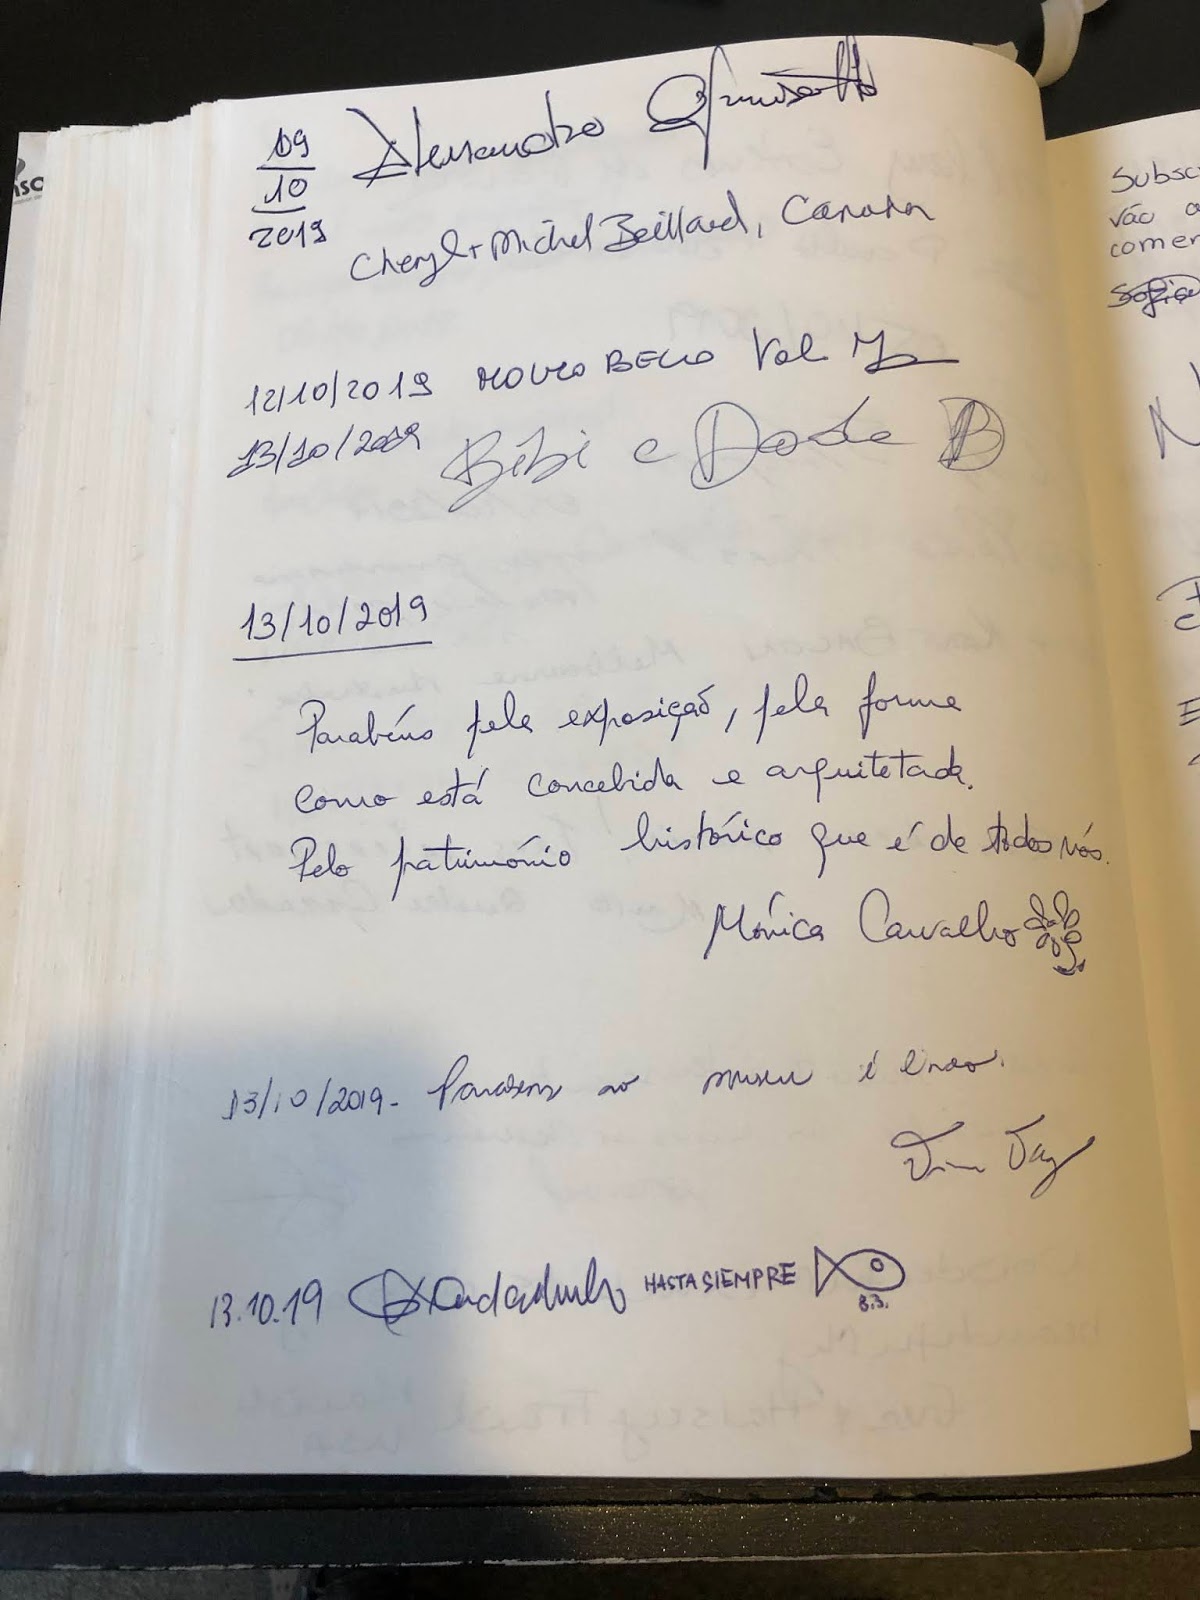 09
10
2019
Alessandro
Cheryl + Michel Beillard, Canada
12/10/2019 Val
13/10/2019 Bibi e
13/10/2019
Parabéns pela exposição, pela forma
como está concebida e arquitetada.
Pelo património histórico que é de todos nós.
Mónica Carvalho
13/10/2019 - Parabens ao museu é lindo.
Vaz
13.10.19 HASTA SIEMPRE
B.B.
Subsc
vão a
comen
Sofia